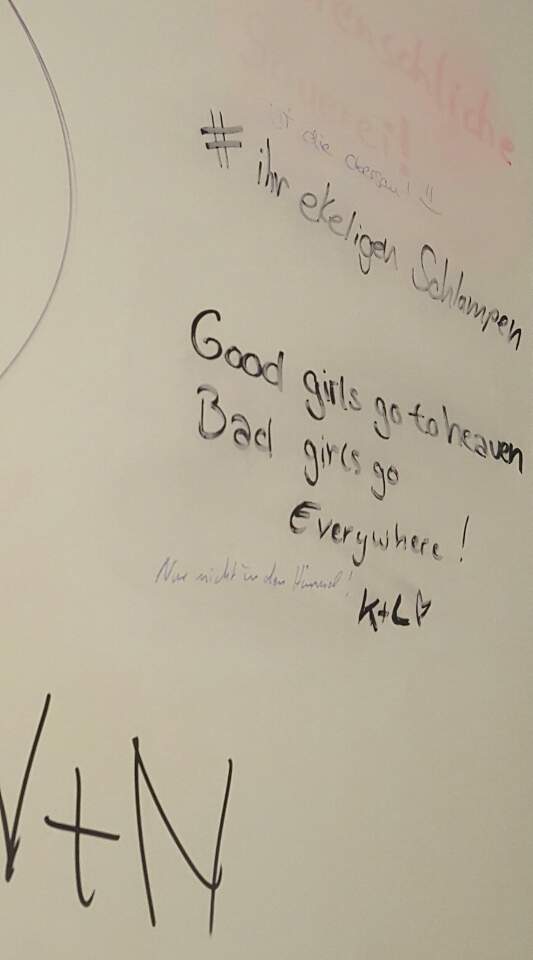 menschliche
ist die
# ihr ekeligen Schlampen
Good girls go to heaven
Bad girls go
Everywhere!
Nur nicht in den Himmel!
K+L♡
V+N